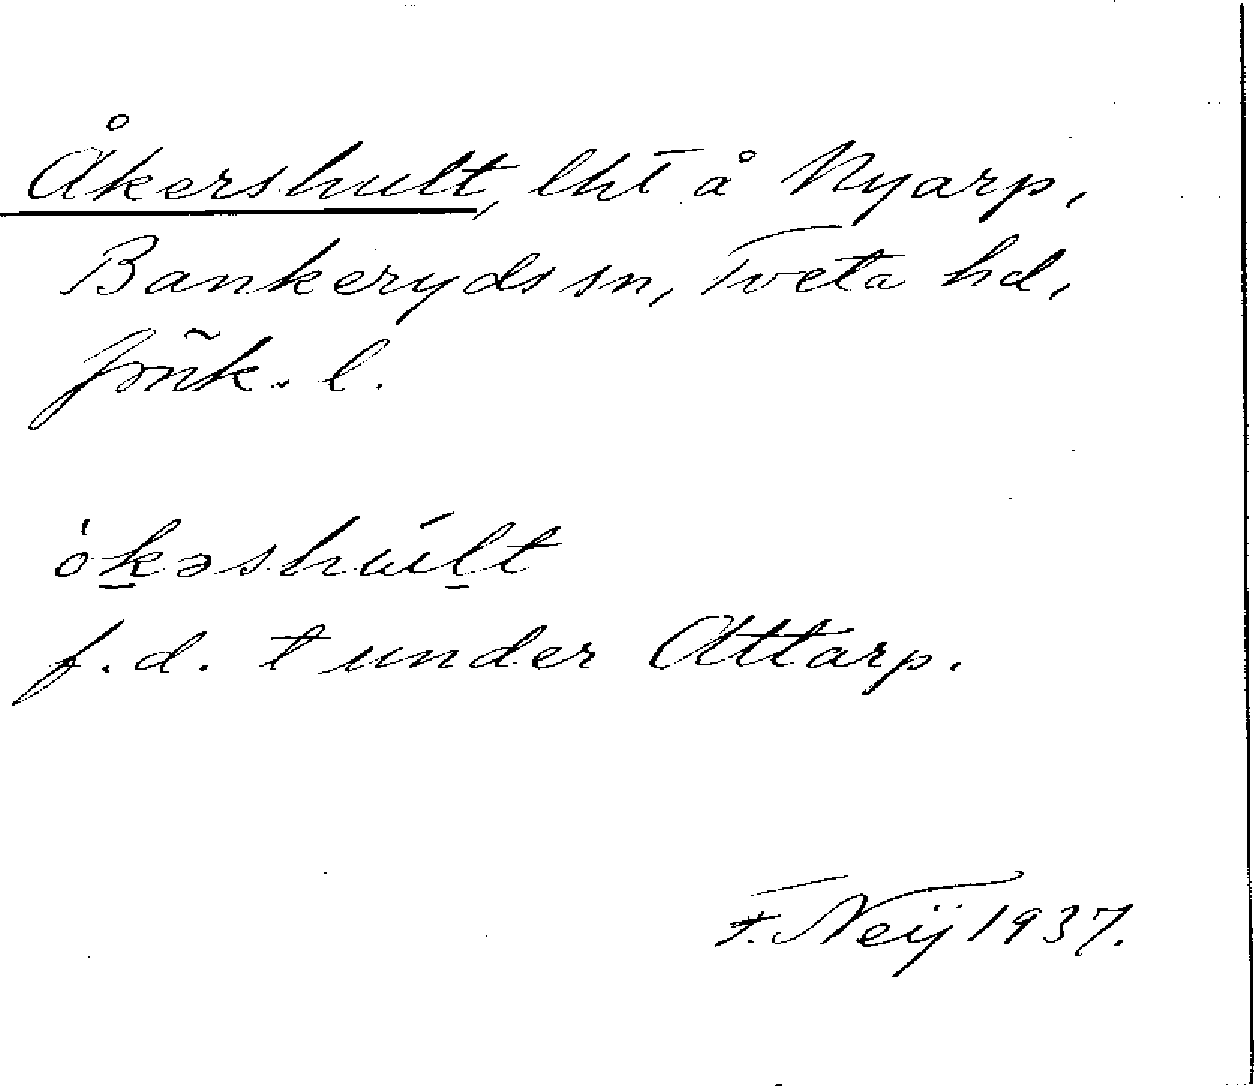 Åkershult, lht å Nyarp,
Bankeryds sn, Tveta hd,
Jönk. l.
ò̱kəshúḻt
f.d. t under Attarp.
F. Neij 1937.